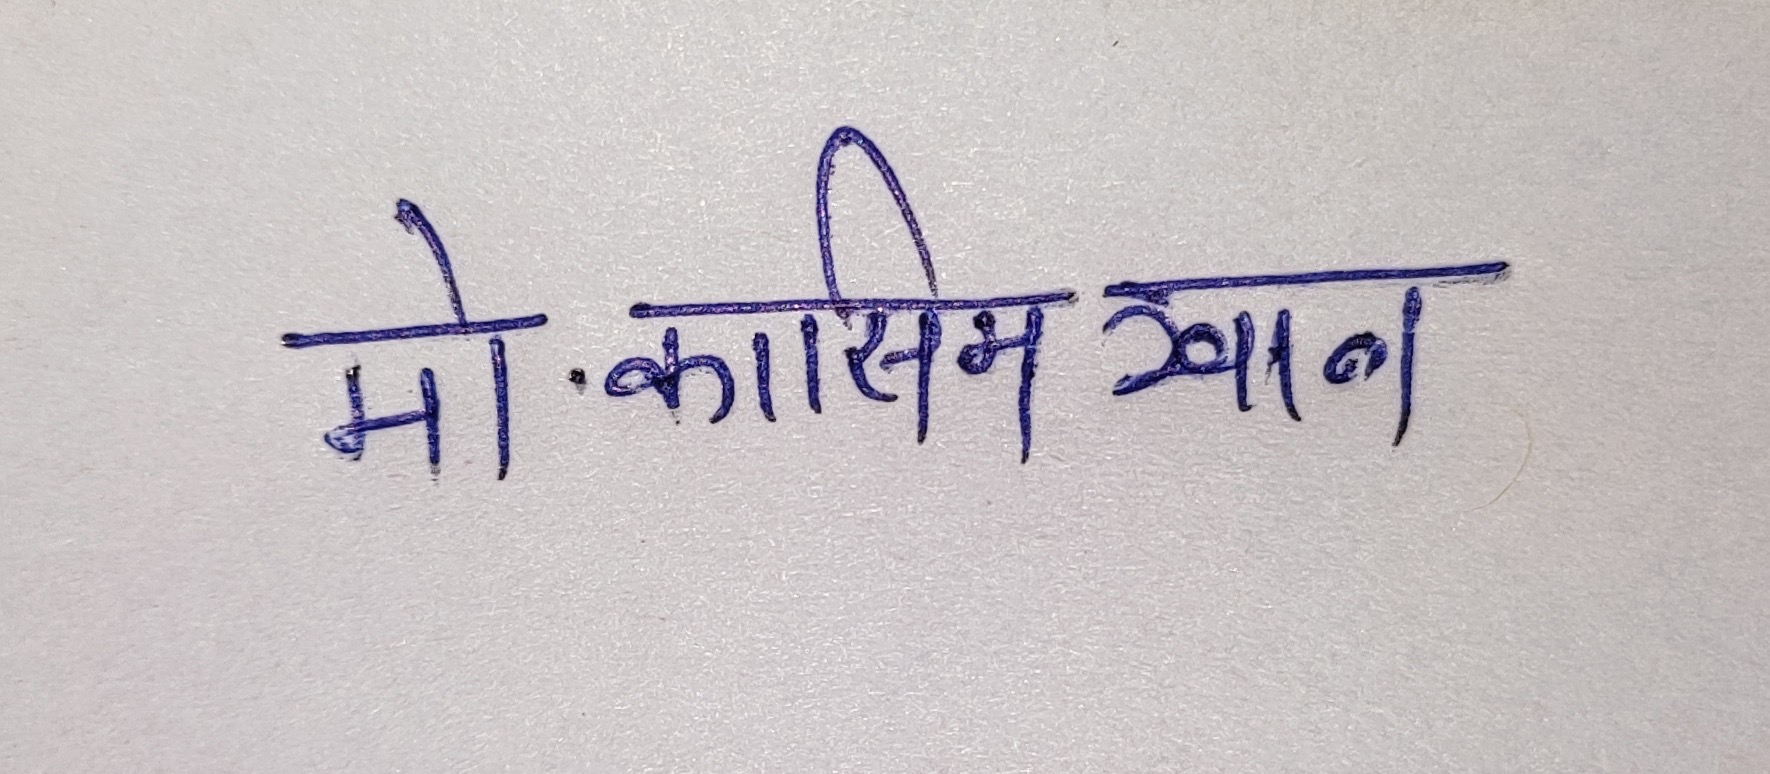 मो. कासिम खान